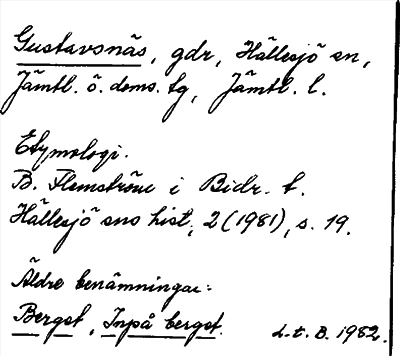 Gustavsnäs, gdr, Hällesjö sn,
Jämtl. ö. doms. tg, Jämtl. l.
Etymologi.
B. Flemström i Bidr. t.
Hällesjö sns hist, 2 (1981), s. 19.
Äldre benämningar:
Berget, Inpå berget.
L.t.B. 1982.